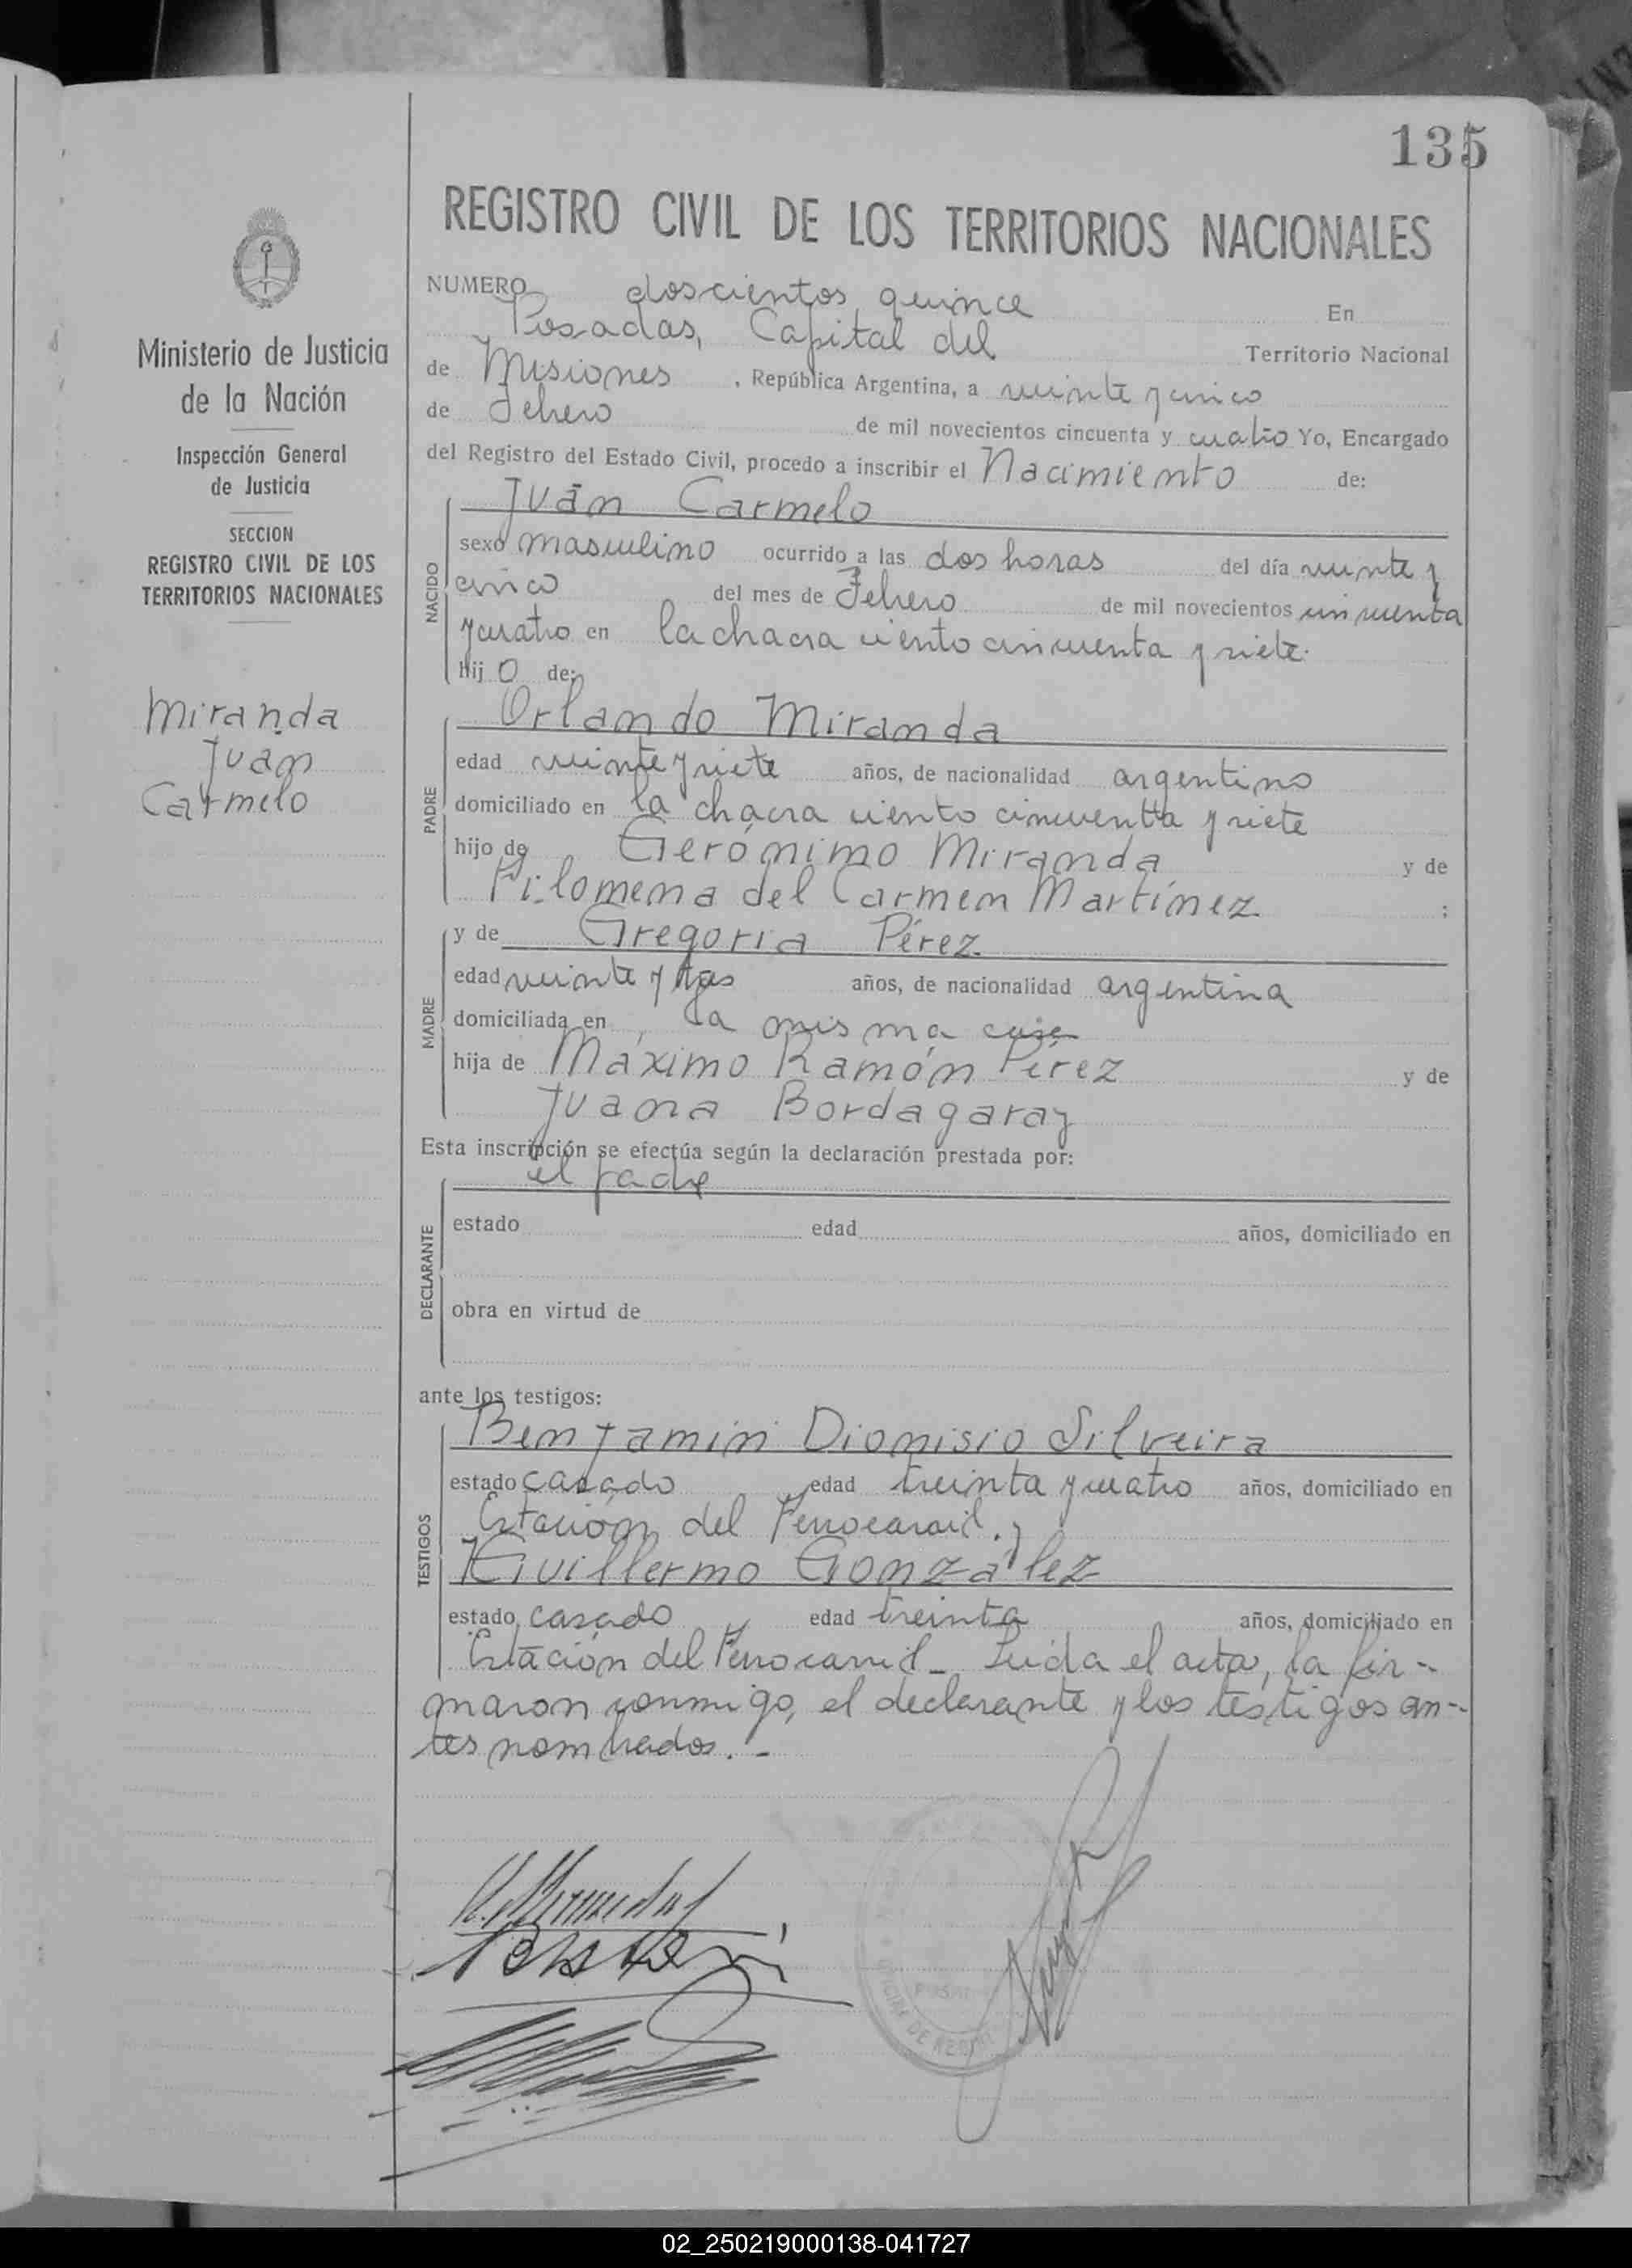 135
REGISTRO CIVIL DE LOS TERRITORIOS NACIONALES
Ministerio de Justicia
de la Nación
Inspección General
de Justicia
SECCION
REGISTRO CIVIL DE LOS
TERRITORIOS NACIONALES
Miranda
Juan
Carmelo
NUMERO doscientos quince En
Posadas, Capital del Territorio Nacional
de Misiones , República Argentina, a veinte y cinco
de Febrero de mil novecientos cincuenta y cuatro Yo, Encargado
del Registro del Estado Civil, procedo a inscribir el Nacimiento de:
NACIDO
Juan Carmelo
sexo masculino ocurrido a las dos horas del día veinte y
cinco del mes de Febrero de mil novecientos cincuenta
y cuatro en la chacra ciento cincuenta y siete.
hij o de:
PADRE
Orlando Miranda
edad veinte y siete años, de nacionalidad argentino
domiciliado en la chacra ciento cincuentta y siete
hijo de Gerónimo Miranda y de
Filomena del Carmen Martínez ;
MADRE
y de Gregoria Pérez
edad veinte y tres años, de nacionalidad argentina
domiciliada en la misma casa
hija de Máximo Ramón Pérez y de
Juana Bordagaray
Esta inscripción se efectúa según la declaración prestada por:
DECLARANTE
el padre
estado edad años, domiciliado en
obra en virtud de
ante los testigos:
TESTIGOS
Benjamin Dionisio Silveira
estado casado edad treinta y cuatro años, domiciliado en
Estación del Ferrocarril. y
Guillermo González
estado casado edad treinta años, domiciliado en
Estación del Ferrocarril_ Leida el acta, la fir-
maron conmigo, el declarante y los testigos an-
tes nombrados. -
OFICINA DE REGI
02_250219000138-041727